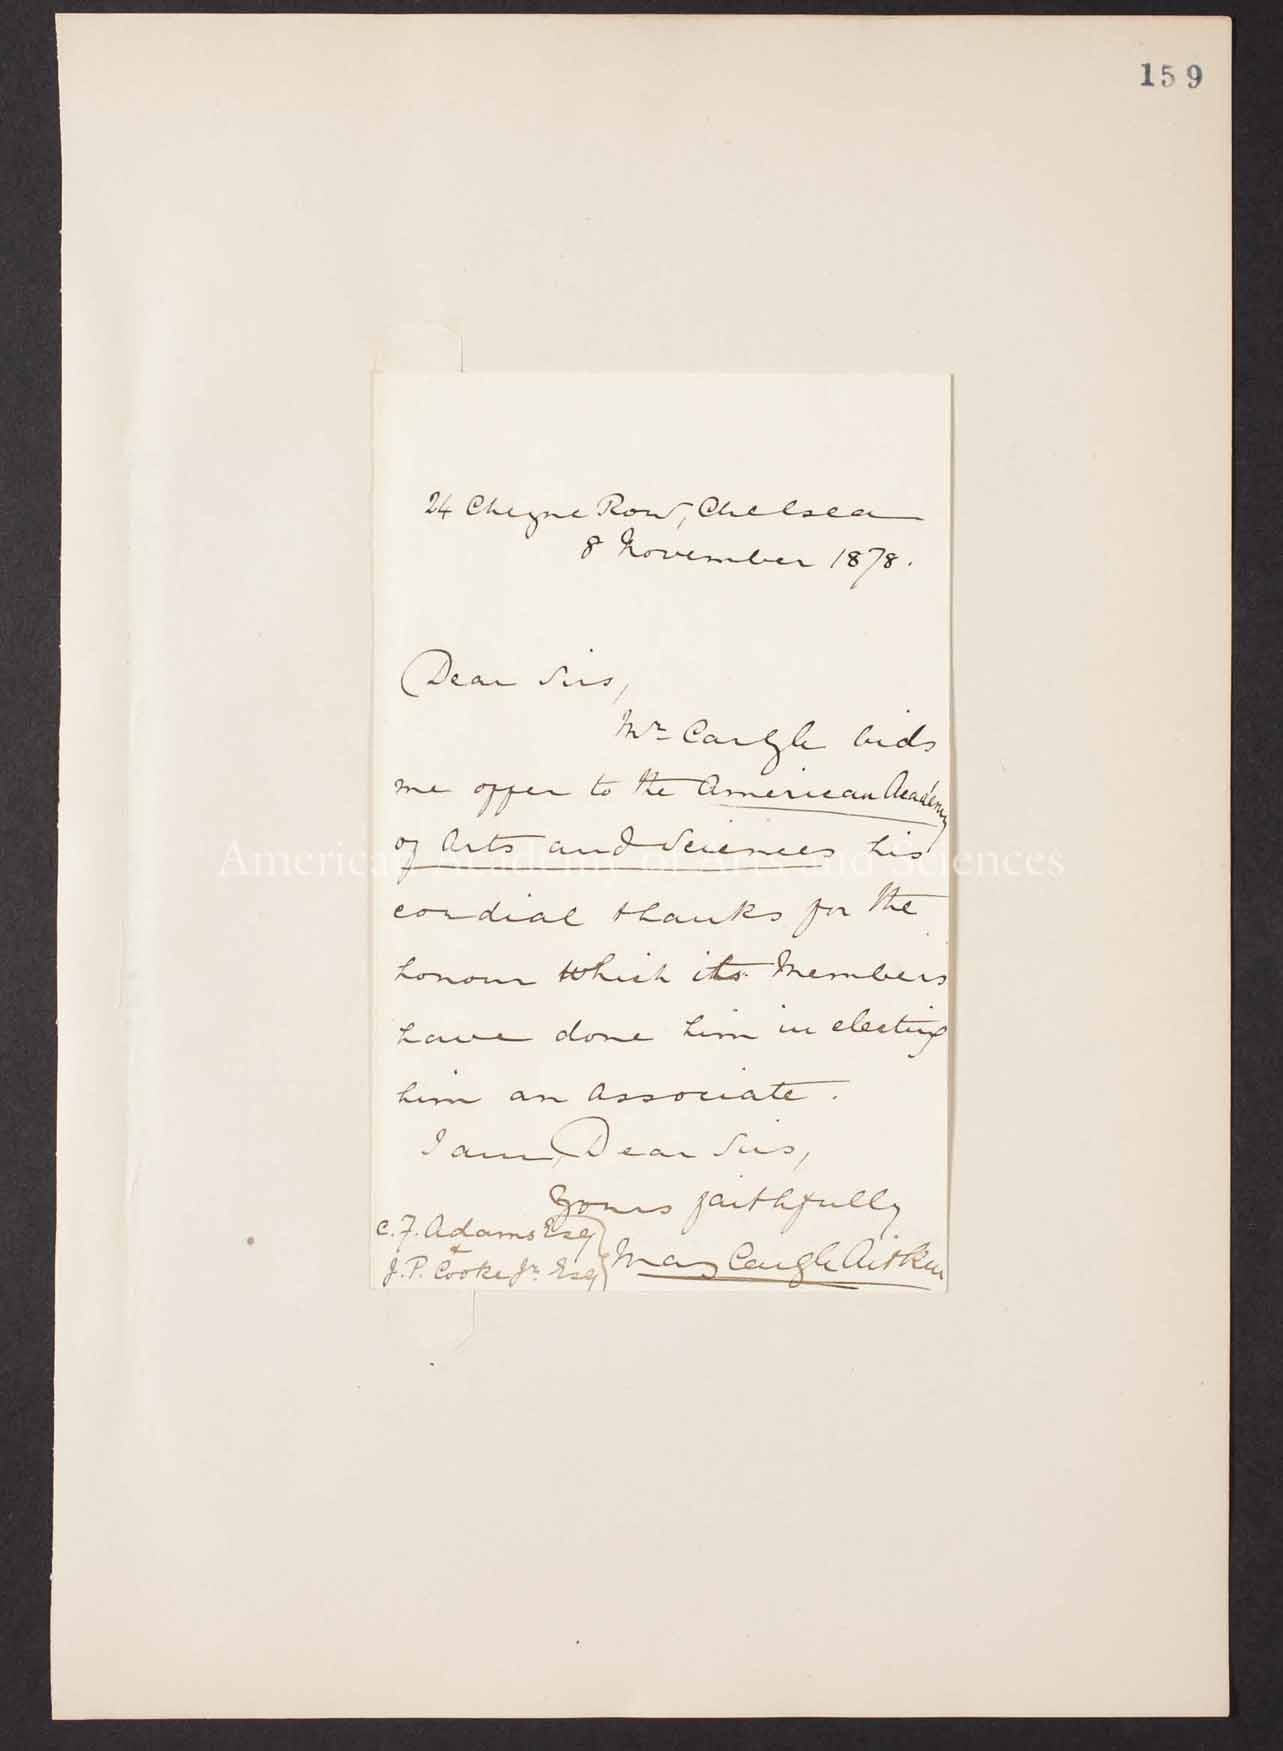 159
24 Cheyne Row, Chelsea
8 November 1878.
Dear Sirs,
Mr Carlyle bids
me offer to the American Academy
of Arts and Sciences his
American Academy of Arts and Sciences
cordial thanks for the
honour which its Members
have done him in electing
him an Associate.
I am, Dear Sirs,
Yours faithfully
C. F. Adams Esq
&
J. P. Cooke Jr. Esq
Mary Carlyle Aitken